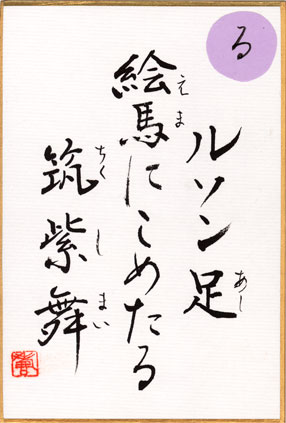 る
ルソン足
あし
絵馬にこめたる
えま
筑紫舞
ちくしまい